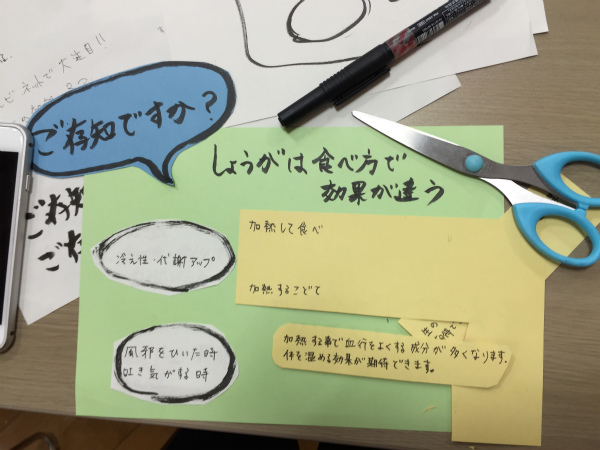 ビ ネットで大注目!!
ご存知ですか?
しょうがは食べ方で
効果が違う
ご存知
ご存
冷え性・代謝アップ
加熱して食べ
加熱することで
生の
加熱する事で血行をよくする成分が多くなります。
体を温める効果が期待できます。
風邪をひいた時
吐き気がする時